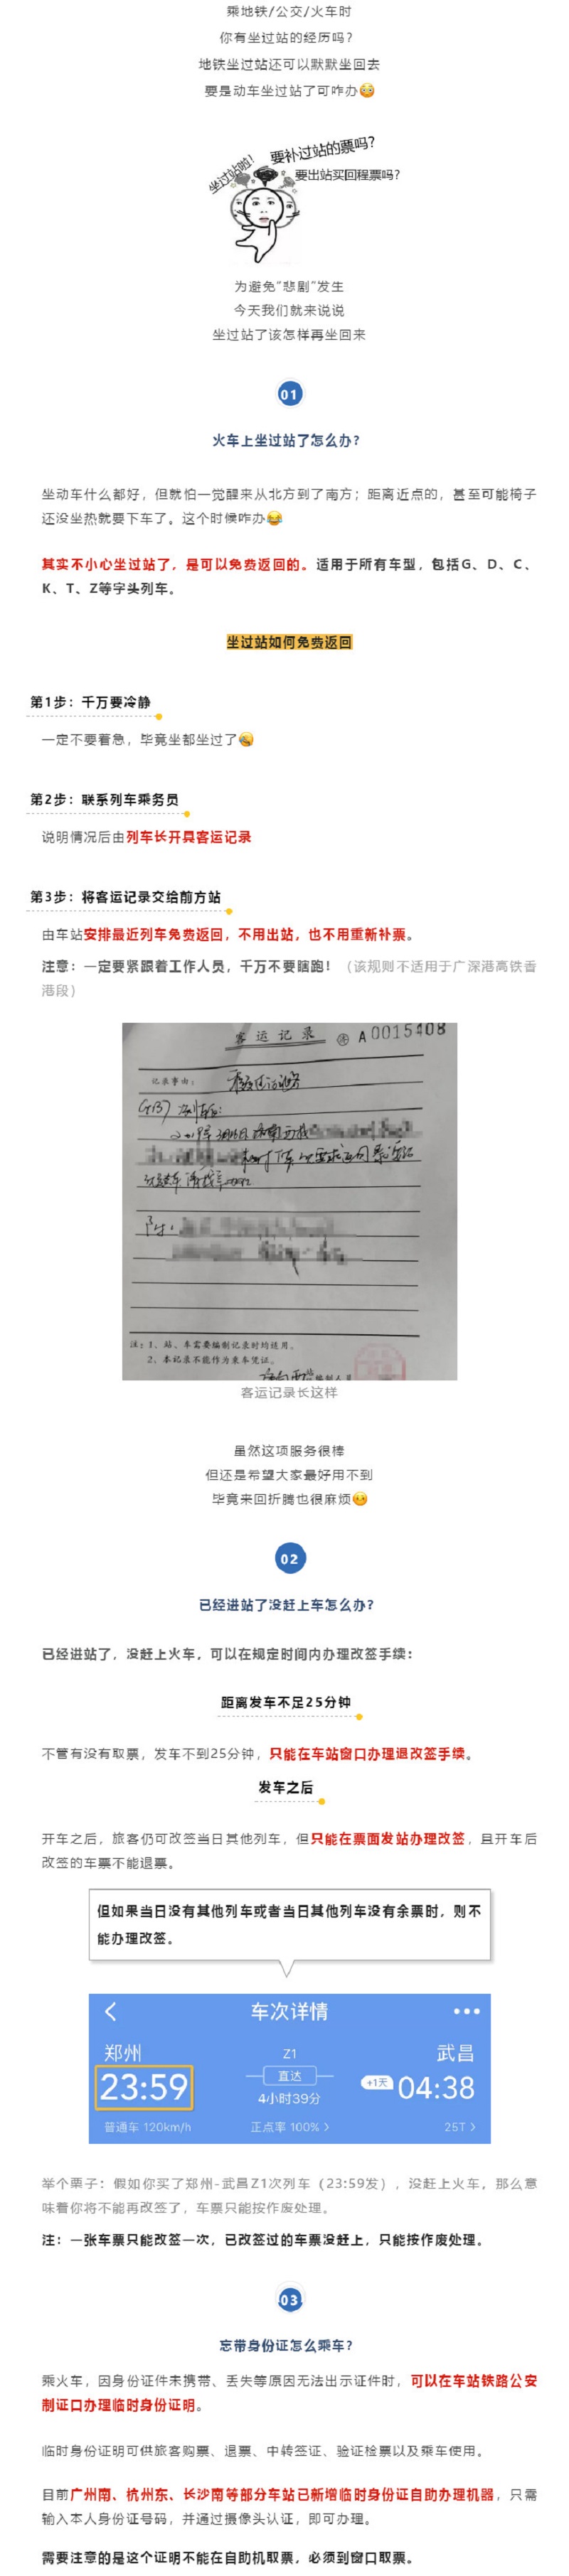 乘地铁/公交/火车时
你有坐过站的经历吗?
地铁坐过站还可以默默坐回去
要是动车坐过站了可咋办😳
坐过站啦!
要补过站的票吗?
要出站买回程票吗?
为避免“悲剧”发生
今天我们就来说说
坐过站了该怎样再坐回来
01
火车上坐过站了怎么办?
坐动车什么都好，但就怕一觉醒来从北方到了南方；距离近点的，甚至可能椅子
还没坐热就要下车了。这个时候咋办😂
其实不小心坐过站了，是可以免费返回的。适用于所有车型，包括G、D、C、
K、T、Z等字头列车。
坐过站如何免费返回
第1步：千万要冷静
一定不要着急，毕竟坐都坐过了😂
第2步：联系列车乘务员
说明情况后由列车长开具客运记录
第3步：将客运记录交给前方站
由车站安排最近列车免费返回，不用出站，也不用重新补票。
注意：一定要紧跟着工作人员，千万不要瞎跑！（该规则不适用于广深港高铁香
港段）
客运记录 A 0015408
记录事由：
注：1、站、车需要编制记录时均适用。
2、本记录不能作为乘车凭证。
编制人员
客运记录长这样
虽然这项服务很棒
但还是希望大家最好用不到
毕竟来回折腾也很麻烦
02
已经进站了没赶上车怎么办?
已经进站了，没赶上火车，可以在规定时间内办理改签手续：
距离发车不足25分钟
不管有没有取票，发车不到25分钟，只能在车站窗口办理退改签手续。
发车之后
开车之后，旅客仍可改签当日其他列车，但只能在票面发站办理改签，且开车后
改签的车票不能退票。
但如果当日没有其他列车或者当日其他列车没有余票时，则不
能办理改签。
车次详情
郑州 Z1 武昌
23:59 直达 +1天 04:38
4小时39分
普通车 120km/h 正点率 100% > 25T >
举个栗子：假如你买了郑州-武昌Z1次列车（23:59发），没赶上火车，那么意
味着你将不能再改签了，车票只能按作废处理。
注：一张车票只能改签一次，已改签过的车票没赶上，只能按作废处理。
03
忘带身份证怎么乘车?
乘火车，因身份证件未携带、丢失等原因无法出示证件时，可以在车站铁路公安
制证口办理临时身份证明。
临时身份证明可供旅客购票、退票、中转签证、验证检票以及乘车使用。
目前广州南、杭州东、长沙南等部分车站已新增临时身份证自助办理机器，只需
输入本人身份证号码，并通过摄像头认证，即可办理。
需要注意的是这个证明不能在自助机取票，必须到窗口取票。